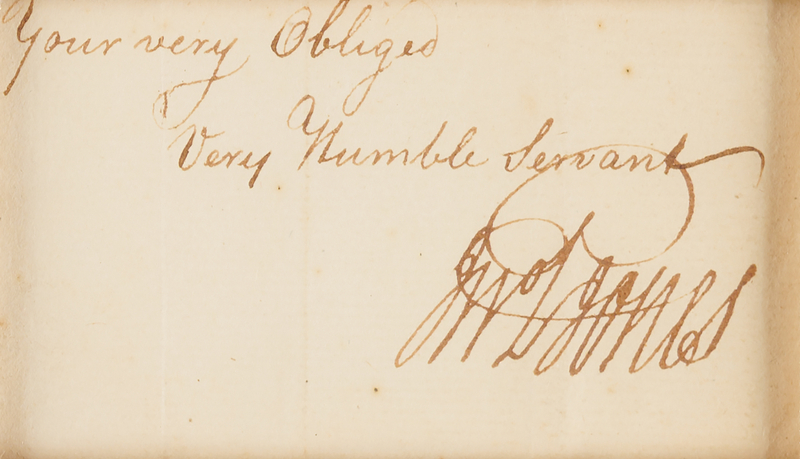 Your very Obliged
Very Humble Servant
Jno L Jones